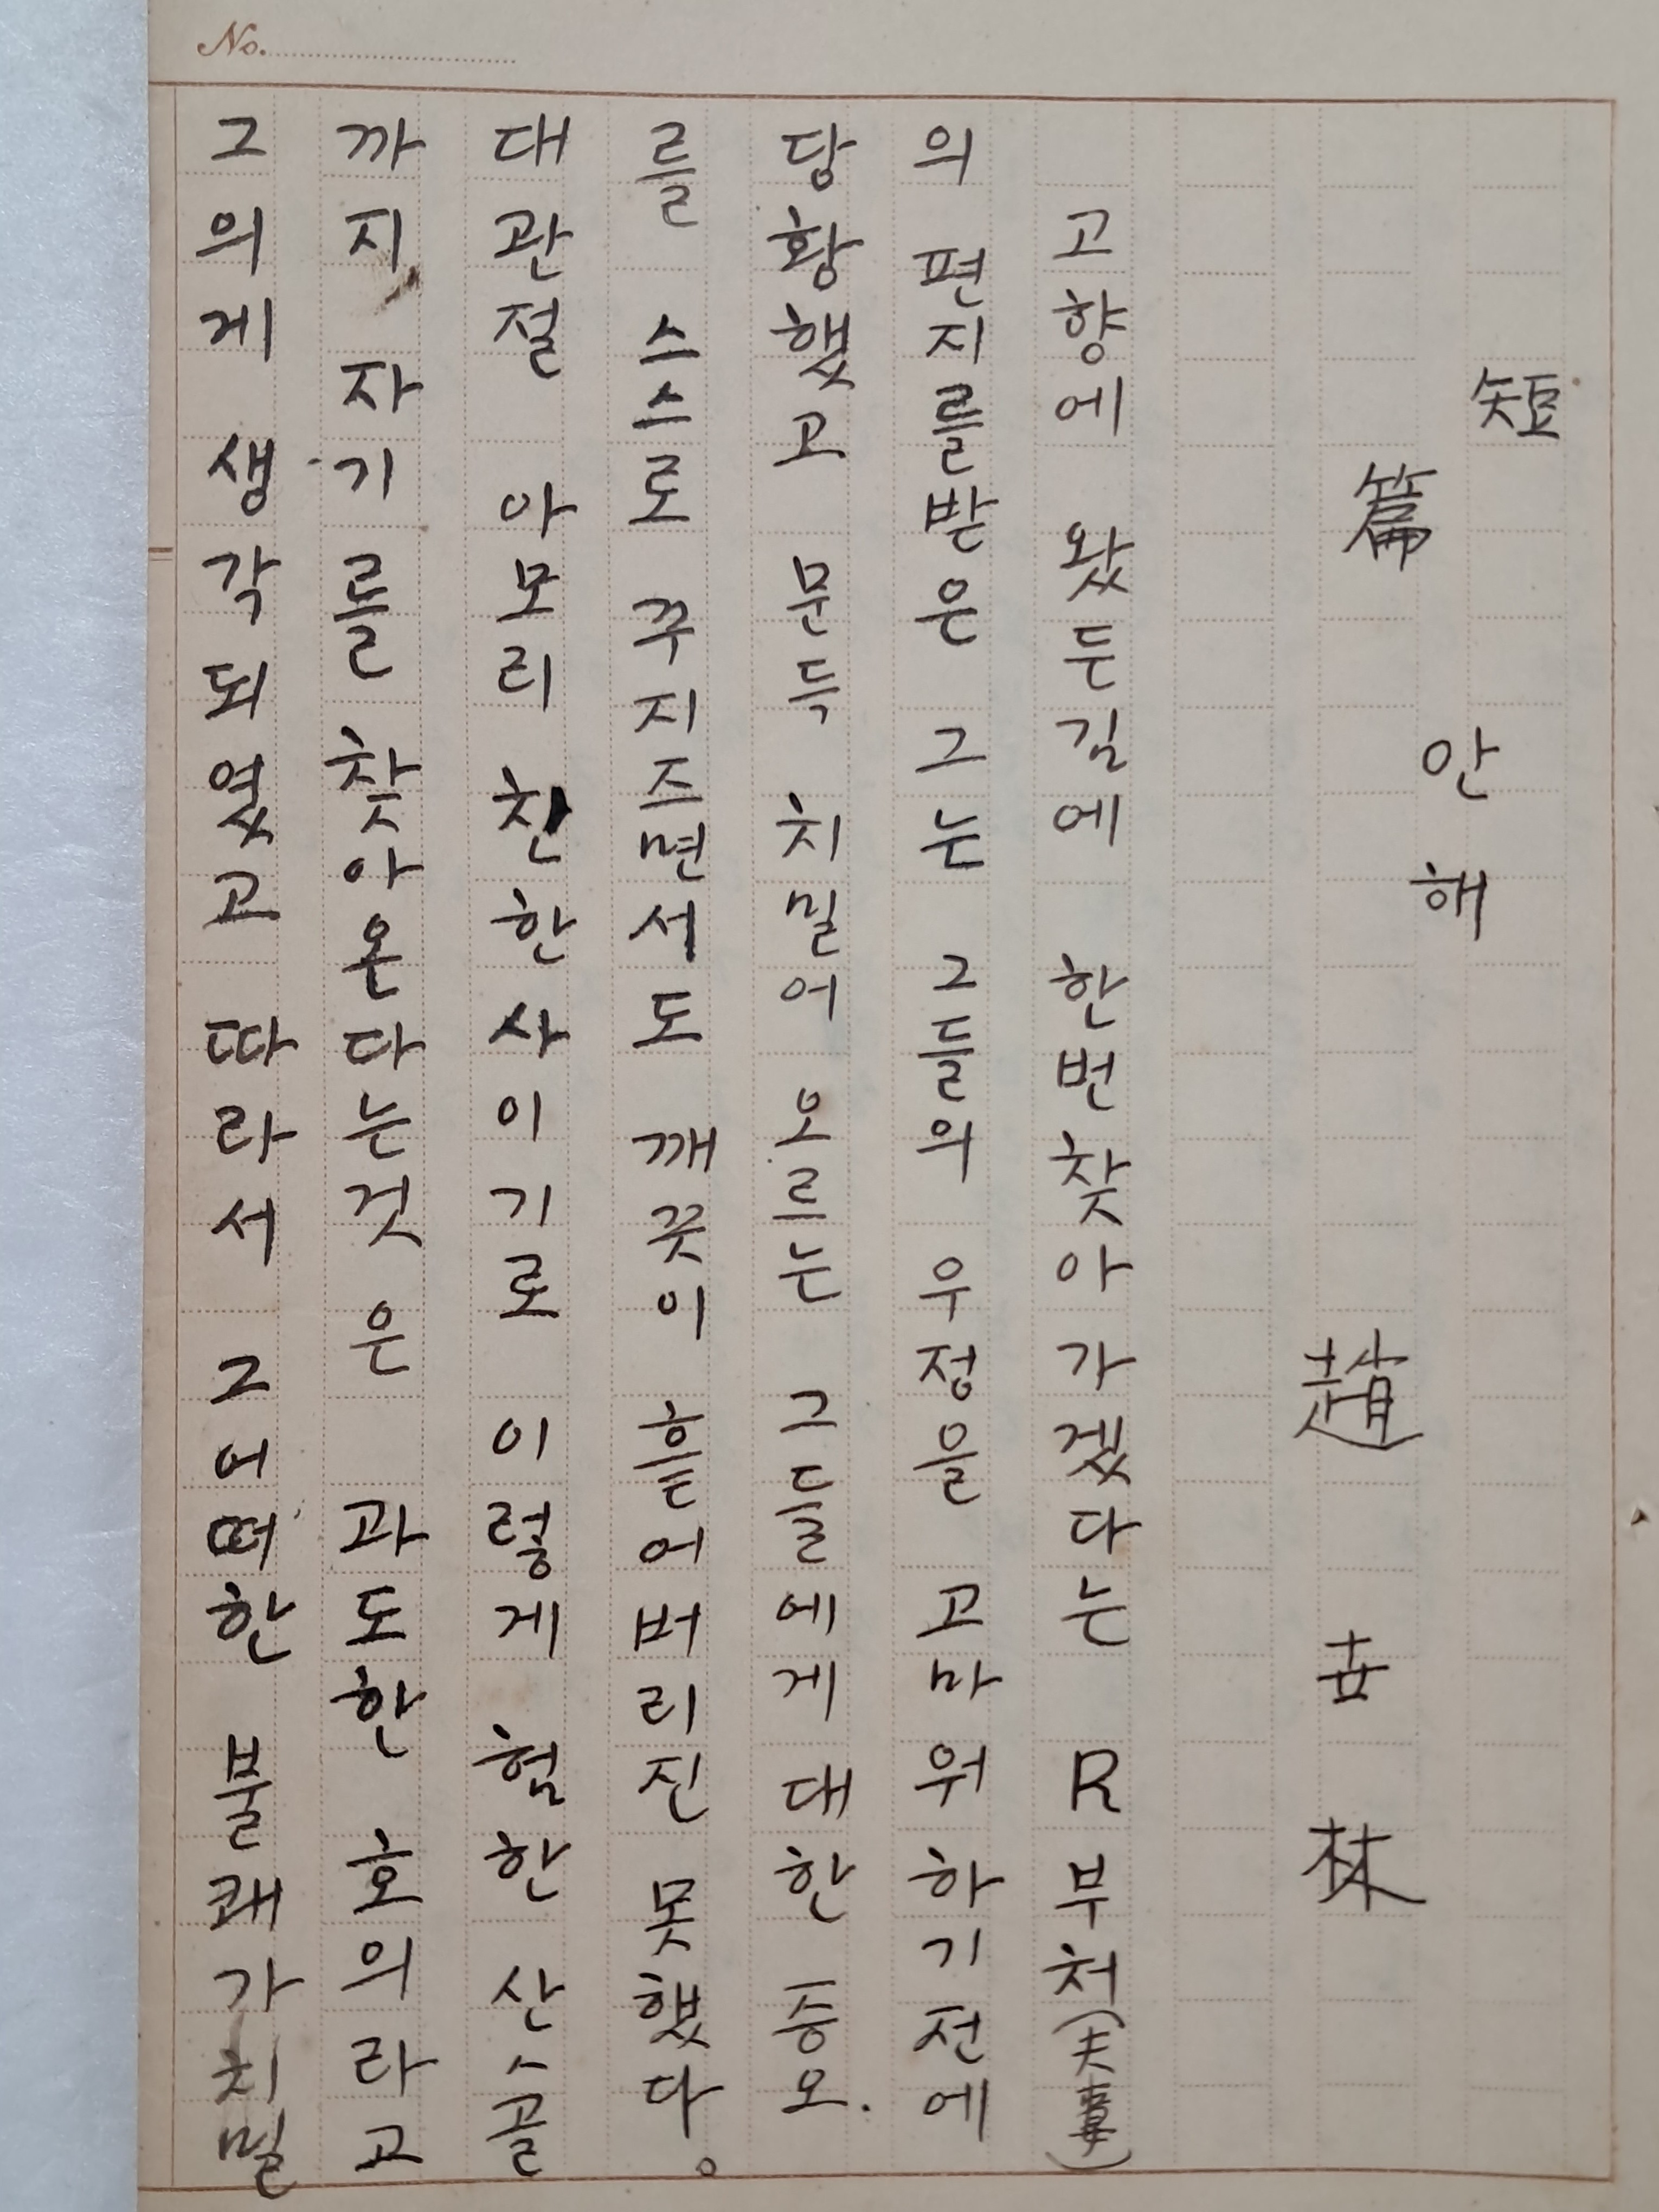 No.
短篇 안해
趙 世 林
고향에 왔든길에 한번찾아가겠다는 R부처(夫妻)
의 편지를받은 그는 그들의 우정을 고마워하기전에
당황했고 문득 치밀어 오르는 그들에게대한 증오.
를 스스로 꾸지즈면서도 깨끗이 흗어버리진 못했다。
대관절 아모리 찬한사이기로 이렇게 험한 산ㅅ골
까지 자기를 찾아온다는것은 과도한 호의라고
그의게 생각되었고 따라서 그어떠한 불쾌가치밀